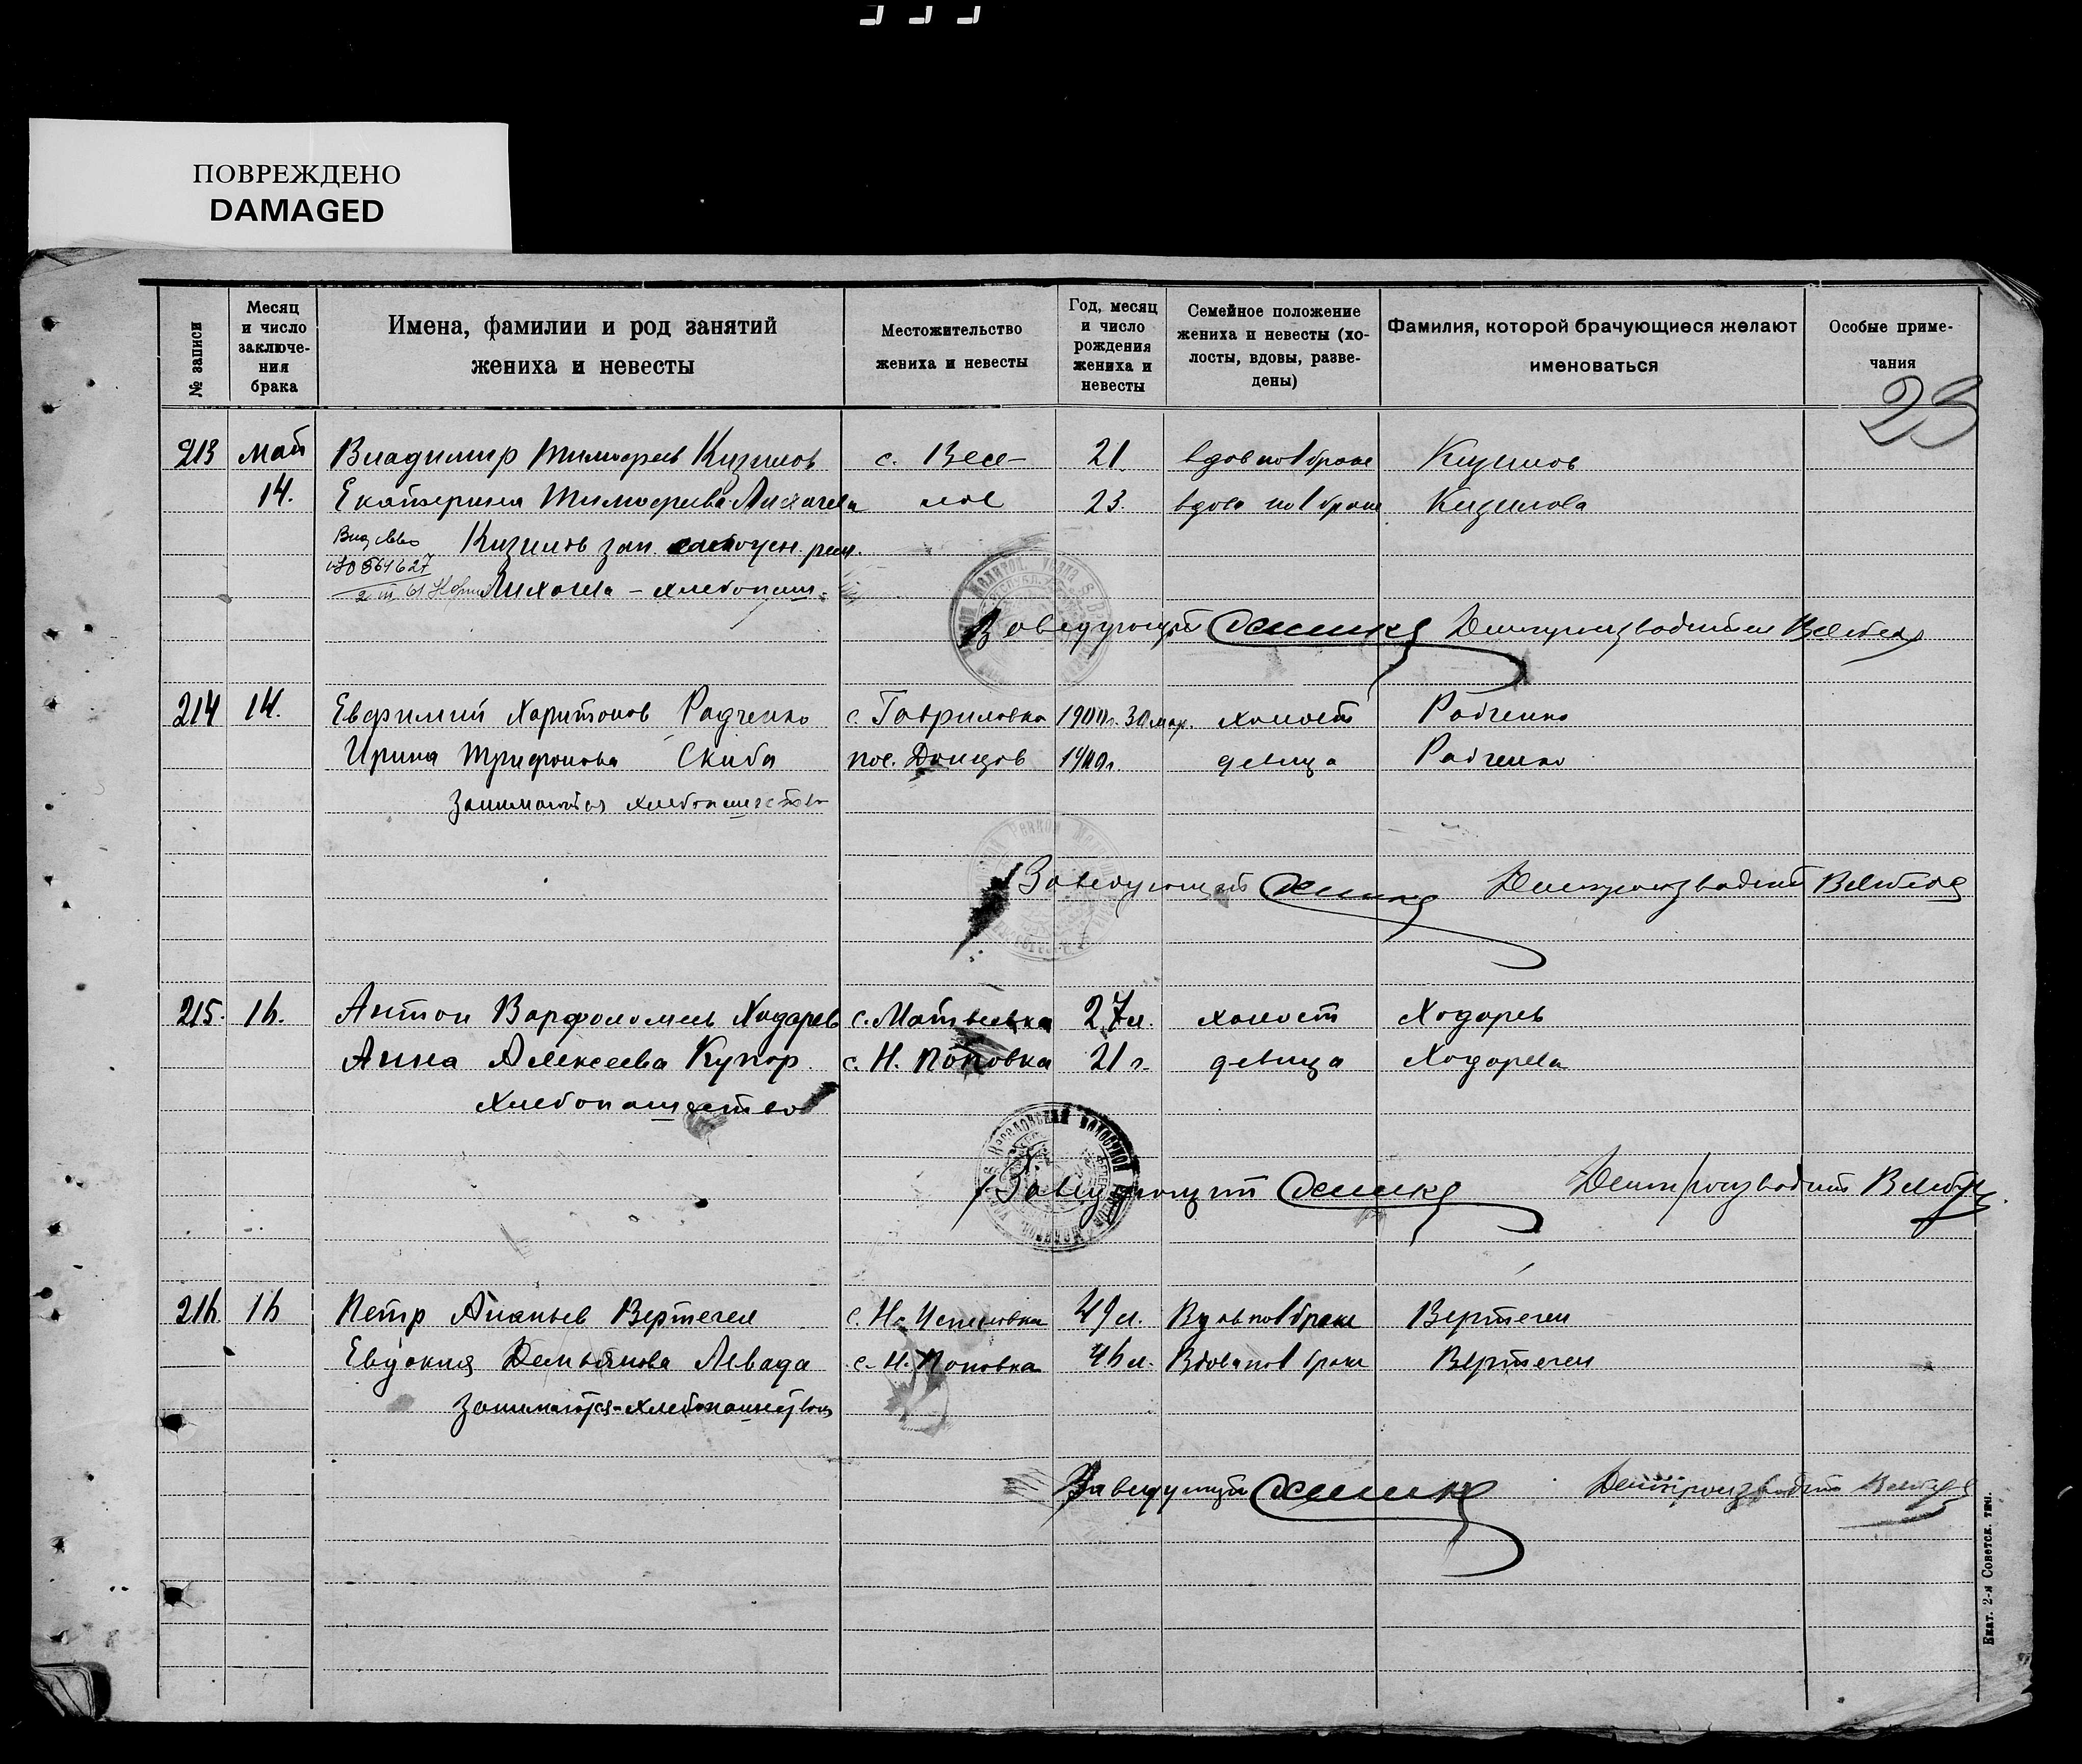 ПОВРЕЖДЕНО
DAMAGED
№ записи
Месяц и число заключения брака
Имена, фамилии и род занятий жениха и невесты
Местожительство жениха и невесты
Год, месяц и число рождения жениха и невесты
Семейное положение жениха и невесты (холосты, вдовы, разведены)
Фамилия, которой брачующиеся желают именоваться
Особые примечания
23
213 май Владимир Тимофеев Кизилов с. Весе- 21. вдов по 1 браке Кизилов
14. Екатерина Тимофеева Лихачева лое 23. вдова по 1 браке Кизилова
Кизилов зан.
Лихачева - хлебопаш.
Заведующий Делопроизводитель
214 14. Евфимий Харитонов Радченко с. Гавриловка 1900г. 30 мар. холост Радченко
Ирина Трифонова Скиба пос. Донцов 1900г. девица Радченко
Занимаются хлебопашество
Заведующий Делопроизводит
215. 16. Антон Варфоломеев Ходарев с. Матвеевка 27 л. холост Ходарев
Анна Алексеева Купор с. Н. Поповка 21 г. девица Ходарева
Хлебопашество
Заведующий Делопроизводит
216. 16 Петр Ананьев Вертегел с. Н- Успеновка 49 л. Вдов по 1 браке Вертегел
Евдокия Демьянова Левада с. Н. Поповка 46 л. Вдова по 1 браке Вертегел
Занимаются-хлебопашеством
Заведующий Делопроизводит
Екат. 2-я Советск. тип.